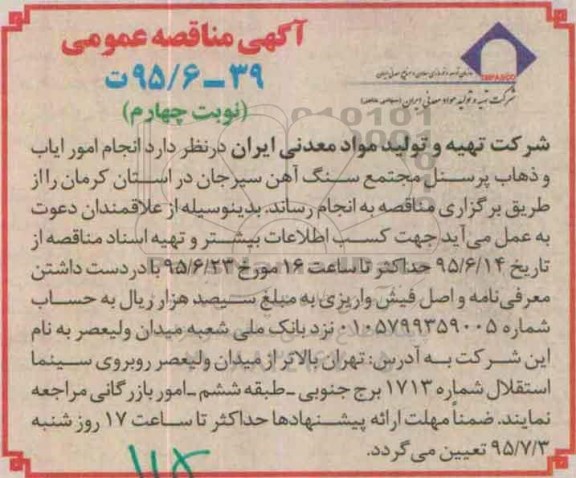 آگهی مناقصه عمومی
۳۹-۹۵/۶ت
(نوبت چهارم)
IMPASCO
شرکت تهیه و تولید مواد معدنی ایران
شرکت تهیه و تولید مواد معدنی ایران در نظر دارد انجام امور ایاب
و ذهاب پرسنل مجتمع سنگ آهن سیرجان در استان کرمان را از
طریق برگزاری مناقصه به انجام رساند. بدینوسیله از علاقمندان دعوت
به عمل می‌آید جهت کسب اطلاعات بیشتر و تهیه اسناد مناقصه از
تاریخ ۹۵/۶/۱۴ حداکثر تا ساعت ۱۶ مورخ ۹۵/۶/۲۳ با در دست داشتن
معرفی‌نامه و اصل فیش واریزی به مبلغ سیصد هزار ریال به حساب
شماره ۰۱۰۵۷۹۹۳۵۹۰۰۵ نزد بانک ملی شعبه میدان ولیعصر به نام
این شرکت به آدرس: تهران بالاتر از میدان ولیعصر روبروی سینما
استقلال شماره ۱۷۱۳ برج جنوبی - طبقه ششم - امور بازرگانی مراجعه
نمایند. ضمناً مهلت ارائه پیشنهادها حداکثر تا ساعت ۱۷ روز شنبه
۹۵/۷/۳ تعیین می‌گردد.